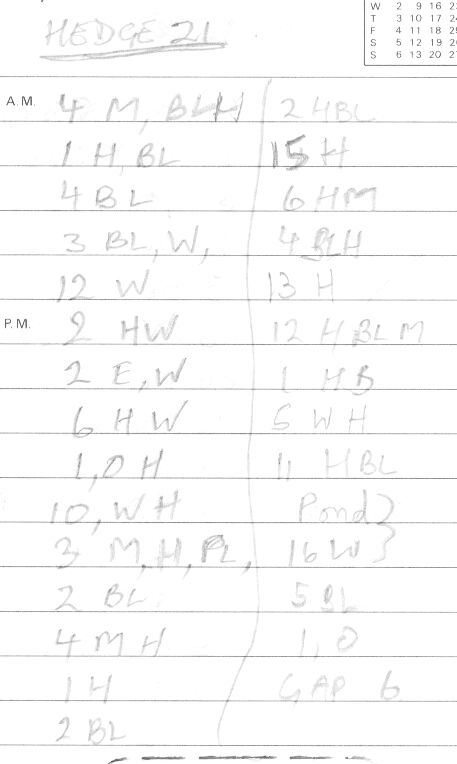 W 2 9 16 23
T 3 10 17 24
F 4 11 18 25
S 5 12 19 26
S 6 13 20 27
HEDGE 21
A.M.
4 M, BLH
1 H, BL
4 BL
3 BL, W,
12 W
P.M.
2 HW
2 E, W
6 H W
1, O H
10, W H
3 M, H, PL,
2 BL
4 M H
1 H
2 BL
2 HBL
15 H
6 HM
4 BLH
13 H
12 H BL M
1 HB
5 W H
1, HBL
Pond }
16 W }
5 BL
1, O
GAP 6